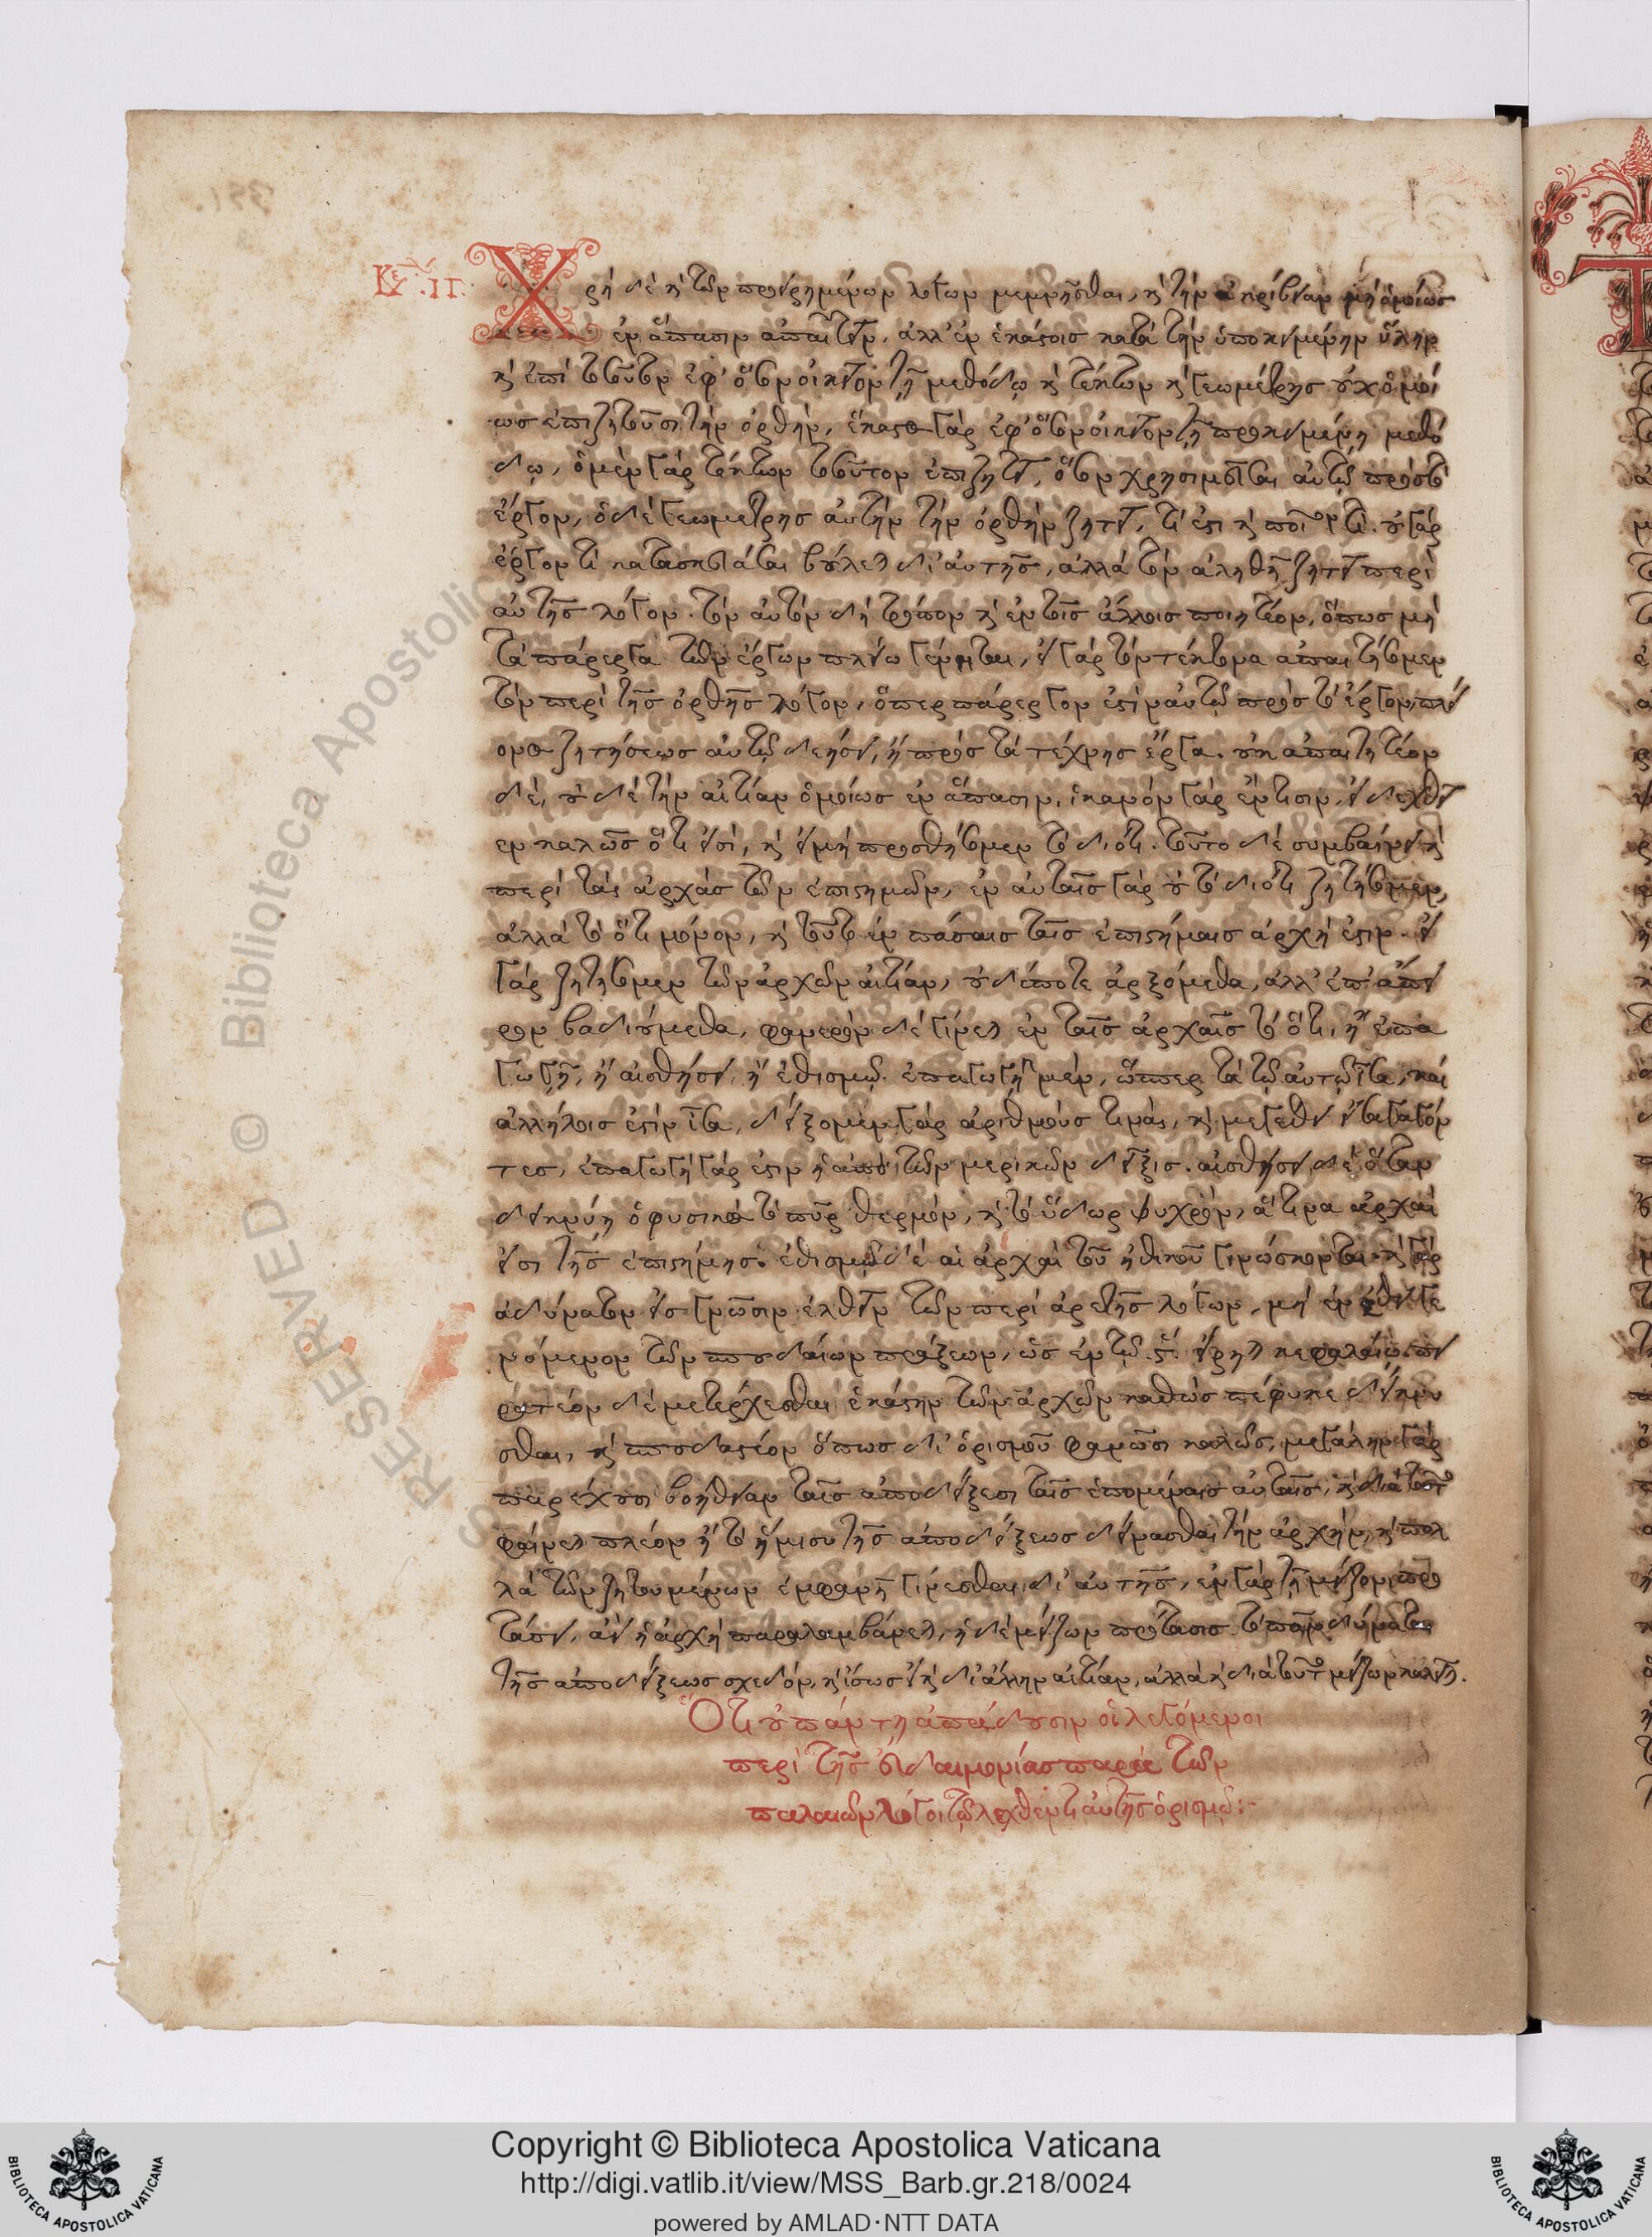 Κείμ. ιγ.
Χρὴ δὲ καὶ τῶν προειρημένων λόγων μεμνῆσθαι, καὶ τὴν ἀκρίβειαν μὴ ὁμοίως
ἐν ἅπασιν ἀπαιτεῖν, ἀλλ' ἐν ἑκάστοις κατὰ τὴν ὑποκειμένην ὕλην
καὶ ἐπὶ τοσοῦτον ἐφ' ὅσον οἰκεῖον τῇ μεθόδῳ καὶ τέκτων καὶ γεωμέτρης οὐχ ὁμοί
ως ἐπιζητοῦσι τὴν ὀρθὴν, ἕκαστος γὰρ ἐφ' ὅσον οἰκεῖον τῇ προκειμένῃ μεθό
δῳ, ὁ μὲν γὰρ τέκτων τοσοῦτον ἐπιζητεῖ, ὅσον χρησιμεύεται αὐτῷ πρὸς τὸ
ἔργον, ὁ δὲ γεωμέτρης αὐτὴν τὴν ὀρθὴν ζητεῖ, τί ἐστι καὶ ποῖόν τι. οὐ γὰρ
ἔργον τι κατασκευάσαι βούλεται δι' αὐτῆς, ἀλλὰ τὸν ἀληθῆ ζητεῖ περὶ
αὐτῆς λόγον. τὸν αὐτὸν δὴ τρόπον καὶ ἐν τοῖς ἄλλοις ποιητέον, ὅπως μὴ
τὰ πάρεργα τῶν ἔργων πλείω γένηται, εἰ γὰρ τὸν τέκτονα ἀπαιτήσομεν
τὸν περὶ τῆς ὀρθῆς λόγον, ὅπερ πάρεργον ἐστὶν αὐτῷ πρὸς τὸ ἔργον, πλεί
ονος ζητήσεως αὐτῷ δεήσει, ἢ πρὸς τὰ τέχνης ἔργα. οὐκ ἀπαιτητέον
δὲ, οὐδὲ τὴν αἰτίαν ὁμοίως ἐν ἅπασιν, ἱκανὸν γὰρ ἔν τισιν, εἰ δειχθεῖ
εν καλῶς ὅτι εἰσὶ, καὶ εἰ μὴ προσθήσομεν τὸ διότι. τοῦτο δὲ συμβαίνει καὶ
περὶ τὰς ἀρχὰς τῶν ἐπιστημῶν, ἐν αὐταῖς γὰρ οὐ τὸ διότι ζητήσομεν,
ἀλλὰ τὸ ὅτι μόνον, καὶ τοῦτο ἐν πάσαις ταῖς ἐπιστήμαις ἀρχὴ ἐστιν. εἰ
γὰρ ζητήσομεν τῶν ἀρχῶν αἰτίαν, οὐδέποτε ἀρξόμεθα, ἀλλ' ἐπ' ἄπει
ρον βαδιούμεθα, φανερὸν δὲ γίνεται ἐν ταῖς ἀρχαῖς τὸ ὅτι, ἢ ἐπα
γωγῇ, ἢ αἰσθήσει, ἢ ἐθισμῷ. ἐπαγωγῇ μὲν, ὥσπερ τὰ τῷ αὐτῷ ἴσα, καὶ
ἀλλήλοις ἐστὶν ἴσα, δείξομεν γὰρ ἀριθμούς τινας, καὶ μεγέθει εἰσαγαγόν
τες, ἐπαγωγὴ γάρ ἐστιν ἡ ἀπὸ τῶν μερικῶν δεῖξις. αἰσθήσει δὲ ὅταν
δεικνύῃ ὁ φυσικὸς τὸ πῦρ θερμὸν, καὶ τὸ ὕδωρ ψυχρὸν, ἅ τινα ἀρχαὶ
εἰσι τῆς ἐπιστήμης. ἐθισμῷ δὲ αἱ ἀρχαὶ τοῦ ἠθικοῦ γινώσκονται. καὶ γὰρ
ἀδύνατον εἰς γνῶσιν ἐλθεῖν τῶν περὶ ἀρετῆς λόγων, μὴ ἐν ἔθει γε
νόμενον τῶν σπουδαίων πράξεων, ὡς ἐν τῷ ϛ. εἴρηται κεφαλαίῳ. πει
ρατέον δὲ μετέρχεσθαι ἑκάστην τῶν ἀρχῶν καθὼς πέφυκε δείκνυ
σθαι, καὶ σπουδαστέον ὅπως δι' ὁρισμοῦ φανῶσι καλῶς, μεγάλην γὰρ
παρέχουσι βοήθειαν ταῖς ἀποδείξεσι ταῖς ἑπομέναις αὐταῖς, καὶ διὰ τοῦτο
φαίνεται πλέον ἢ τὸ ἥμισυ τῆς ἀποδείξεως δύνασθαι τὴν ἀρχὴν, καὶ πολ
λὰ τῶν ζητουμένων ἐμφανῆ γίνεσθαι δι' αὐτῆς, ἐν γὰρ τῇ μείζονι προ
τάσει, ἀεὶ ἡ ἀρχὴ παραλαμβάνεται, ἡ δὲ μείζων πρότασις τὸ πᾶν δύναται
τῆς ἀποδείξεως σχεδὸν, καὶ ἴσως εἰ καὶ δι' ἄλλην αἰτίαν, ἀλλὰ καὶ διὰ τοῦτο μείζων καλεῖται.
Ὅτι οὐ πάντῃ ἀπᾴδουσιν οἱ λεγόμενοι
περὶ τῆς εὐδαιμονίας παρὰ τῶν
παλαιῶν λόγοι τῷ λεχθέντι αὐτῆς ὁρισμῷ:-
RESERVED © Biblioteca Apostolica
Copyright © Biblioteca Apostolica Vaticana
http://digi.vatlib.it/view/MSS_Barb.gr.218/0024
powered by AMLAD·NTT DATA
BIBLIOTECA APOSTOLICA VATICANA
BIBLIOTECA APOSTOLICA VATICANA